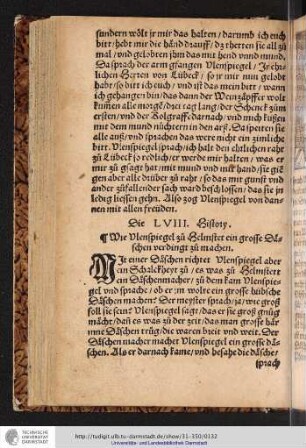 sundern wölt jr mir das halten / darumb ich euch
bitt / hebt mir die händ drauff / dz thetten sie all zů
mal / und gelobten jhm das mit hend unnd mund.
Da sprach der arm gfangen Ulenspiegel / Jr ehr-
lichen Herren von Lübeck / so jr mir nun gelobt
habt / so bitt ich euch / und ist das mein bitt / wann
ich gehangen bin / das dann der Weinzäpffer wölt
kum̃en alle morgẽ / drei tag lang / der Schenck zum
ersten / und der Golgraffe darnach / und mich küssen
mit dem mund nüchtern in den arß. Da speiten sie
alle auß / und sprachen das were nit ein zimliche
bitt. Ulenspiegel sprach / ich halt den ehrlichen raht
zů Lübeck so redlich / er werde mir halten / was er
mir zů gsagt hat / mit mund und mit hand / sie gien-
gen aber alle drüber zů raht / so das mit gunst und
ander zůfallender sach ward beschlossen / das sie jn
ledig liessen gehn. Also zog Ulenspiegel von dan-
nen mit allen freüden.
Die LVIII. History.
¶ Wie Ulenspiegel zů Helmstet ein grosse Dä-
schen verdingt zů machen.
MJt einer Däschen richtet Ulenspiegel aber
ein Schalckheyt zů / es was zů Helmstett
ein Däschenmacher / zů dem kam Ulenspie-
gel und sprache / ob er jm wolte ein grosse hübsche
Däschen machen? Der meyster sprach / ja / wie groß
soll sie sein? Ulenspiegel sagt / das er sie groß gnůg
machte / dañ es was zů der zeit / das man grosse här-
inne Däschen trůg / die waren breit und weit. Der
Däschen macher machet Ulenspiegel ein grosse dä-
schen. Als er darnach kame / und besahe die däschẽ /
sprach
TECHNISCHE UNIVERSITÄT DARMSTADT
http://tudigit.ulb.tu-darmstadt.de/show/31-350/0132
Universitäts- und Landesbibliothek Darmstadt